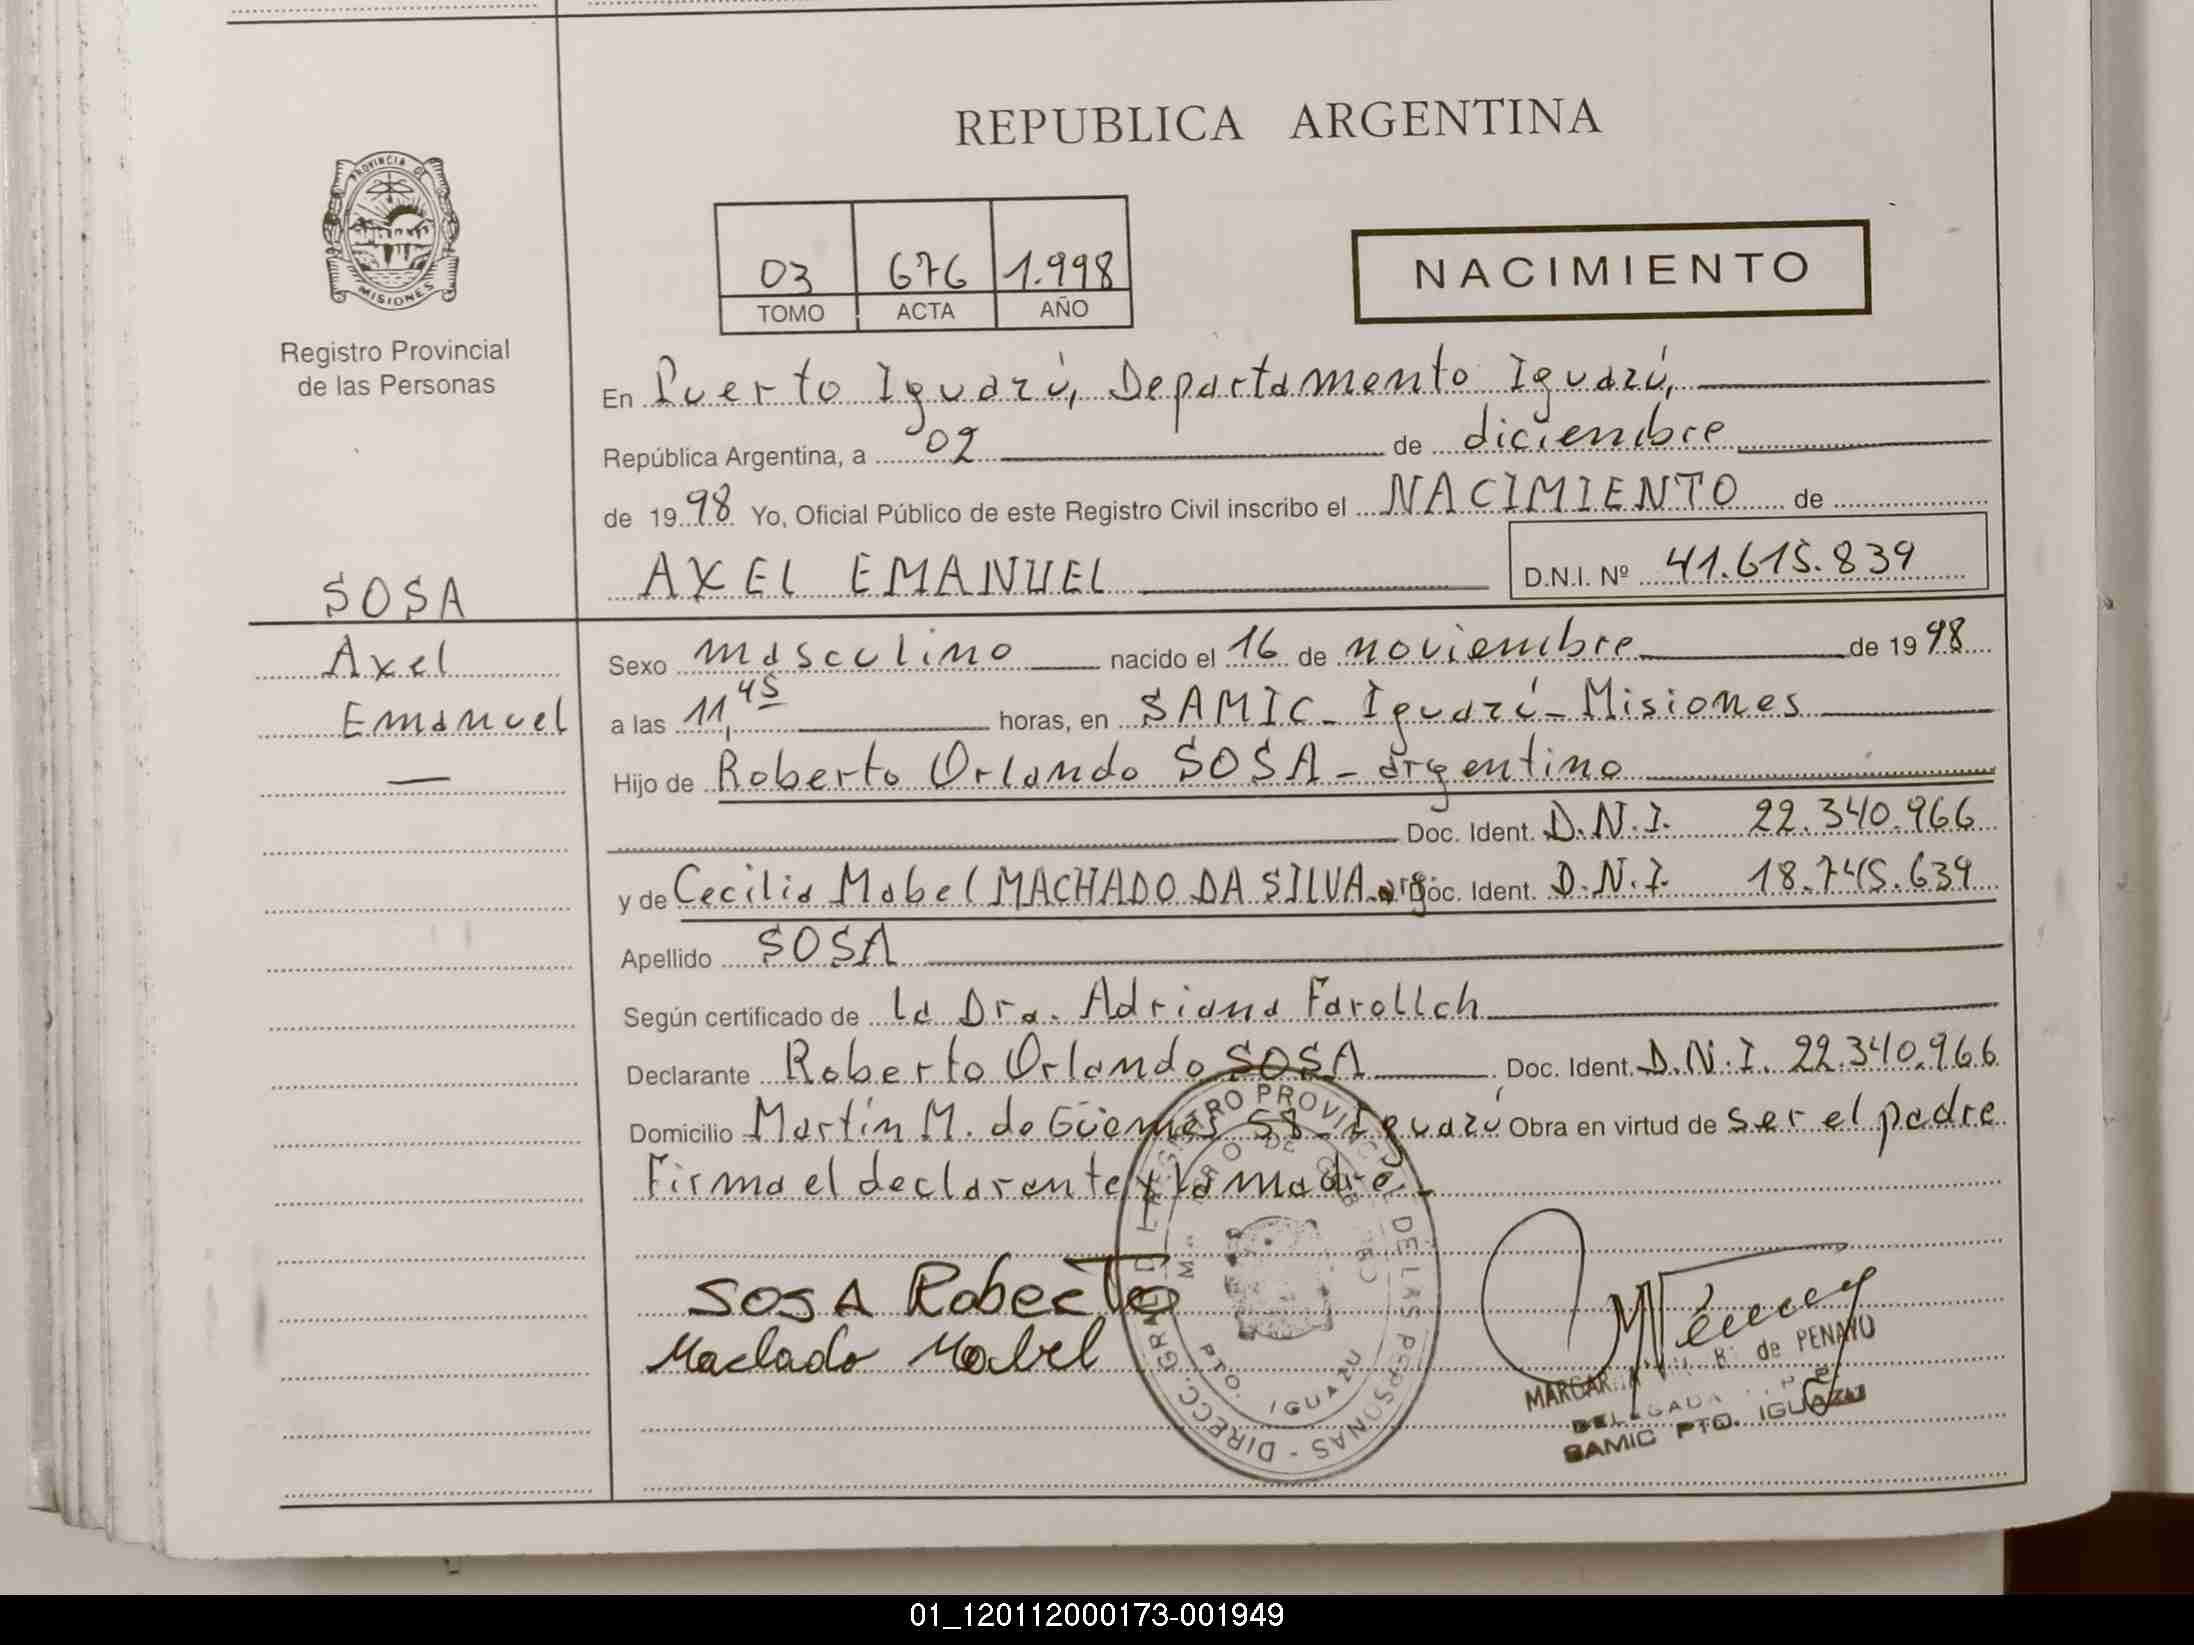 REPUBLICA ARGENTINA
PROVINCIA DE
MISIONES
Registro Provincial
de las Personas
03 676 1.998
TOMO ACTA AÑO
NACIMIENTO
En Puerto Iguazú, Departamento Iguazú,
República Argentina, a 02 de diciembre
de 1998 Yo, Oficial Público de este Registro Civil inscribo el NACIMIENTO de
AXEL EMANUEL D.N.I. Nº 41.615.839
SOSA
Axel
Emanuel
Sexo masculino nacido el 16 de noviembre de 1998
a las 11,45 horas, en SAMIC - Iguazú - Misiones
Hijo de Roberto Orlando SOSA - argentino
Doc. Ident. D.N.I. 22.340.966
y de Cecilia Mabel MACHADO DA SILVA - arg. Doc. Ident. D.N.I. 18.745.639
Apellido SOSA
Según certificado de la Dra. Adriana Farollch
Declarante Roberto Orlando SOSA Doc. Ident. D.N.I. 22.340.966
Domicilio Martín M. de Güemes 58 - Iguazú Obra en virtud de ser el padre
Firma el declarante y la madre.-
SOSA Roberto
Machado Mabel
DIRECC. GRAL. REGISTRO PROVINCIAL DE LAS PERSONAS
PTO. IGUAZU
de PENAYO
DELEGADA
SAMIC PTO. IGUAZU
01_120112000173-001949